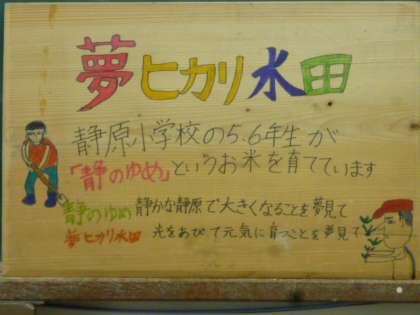 夢ヒカリ水田
静原小学校の5.6年生が
「静のゆめ」というお米を育てています
静のゆめ 静かな静原で大きくなることを夢見て
夢ヒカリ水田 光をあびて元気に育つことを夢見て